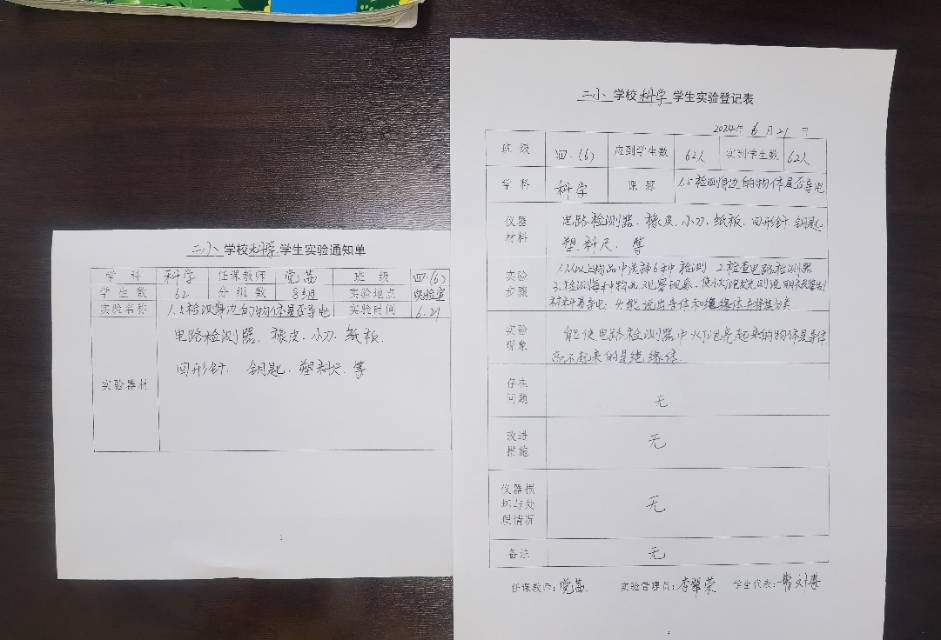 二小 学校 科学 学生实验通知单
学科 科学 任课教师 党茜 班级 四.(6)
学生数 62 分组数 8组 实验地点 实验室
实验名称 1.5检测身边的物体是否导电 实验时间 6.21
实验器材
电路检测器、橡皮、小刀、纸板、
回形针、钥匙、塑料尺、等
二小 学校 科学 学生实验登记表
2024年 6 月 21 日
班级 四.(6) 应到学生数 62人 实到学生数 62人
学科 科学 课题 1.5检测身边的物体是否导电
仪器材料
电路检测器、橡皮、小刀、纸板、回形针 钥匙、
塑料尺、等
实验步骤
物品中选 6种检测 2.检查电路检测器
3.检测每种物品
实验现象
能使电路检测器中小灯泡亮起来的物体是导体
不起来的是绝缘体.
存在问题 无
改进措施 无
仪器损坏与处理情况 无
备注 无
任课教师: 党茜 实验管理员: 学生代表: